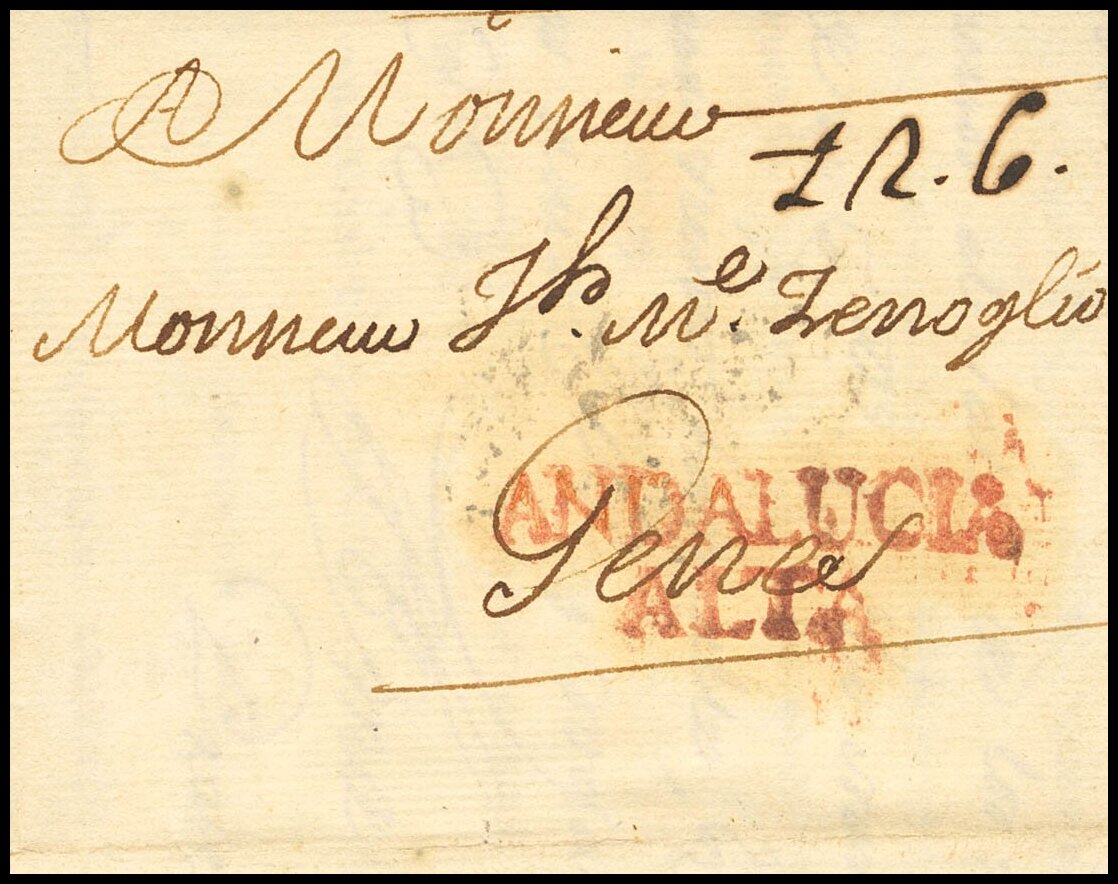 A Monsieur
12. 6.
Monsieur Jh. Me. Zenoglio
Genes
ANDALUCIA
ALTA